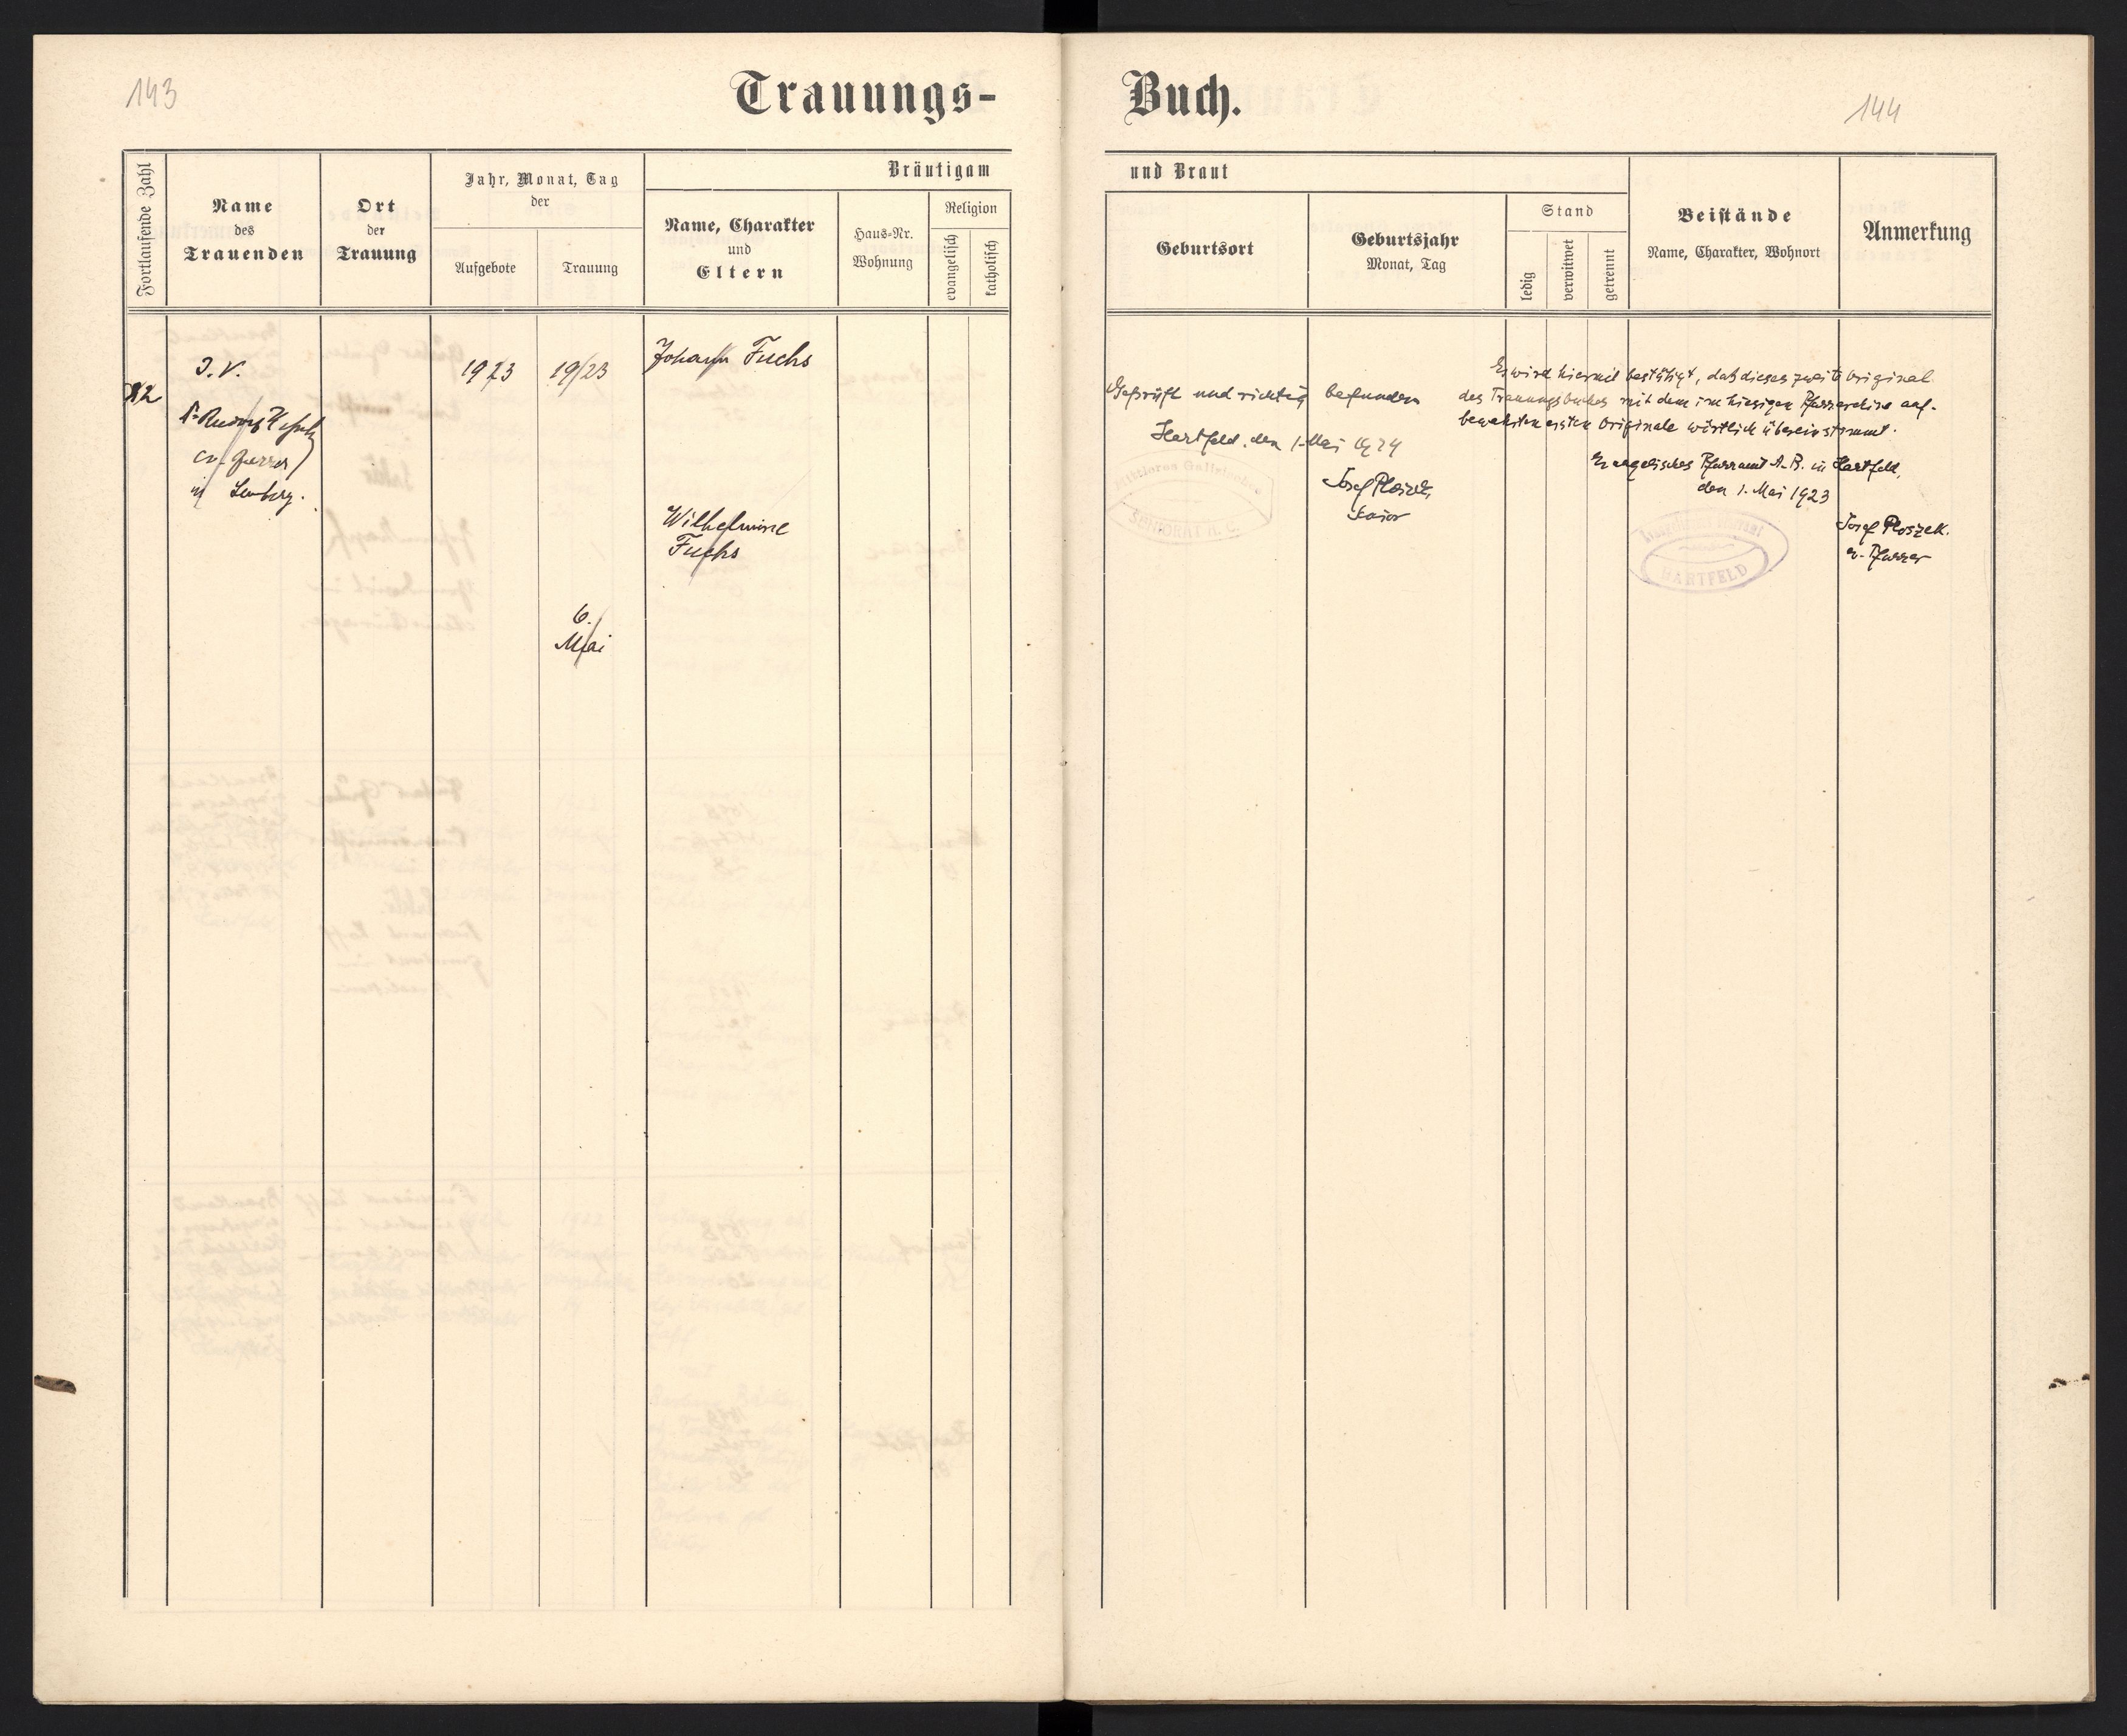 143
Trauungs-
Buch.
144
Fortlaufende Zahl
Name
des
Trauenden
Ort
der
Trauung
Jahr, Monat, Tag
der
Aufgebote
Trauung
Bräutigam
Name, Charakter
und
Eltern
Haus-Nr.
Wohnung
Religion
evangelisch
katholisch
und Braut
Geburtsort
Geburtsjahr
Monat, Tag
Stand
ledig
verwitwet
getrennt
Beistände
Name, Charakter, Wohnort
Anmerkung
I. V.
in Lemberg.
1923
19/23
6.
Mai
Johann Fuchs
Wilhelmine
Fuchs
Geprüft und richtig befunden
Hartfeld, den 1. Mai 1924
Josef Ploszek,
Senior
SENIORAT A. C.
Es wird hiermit bestätigt, daß dieses zweite Original
des Trauungsbuches mit dem im hiesigen Pfarrarchive auf-
bewahrten ersten Originale wörtlich übereinstimmt.
Evangelisches Pfarramt A. B. in Hartfeld,
den 1. Mai 1923
Josef Ploszek.
ev. Pfarrer
HARTFELD